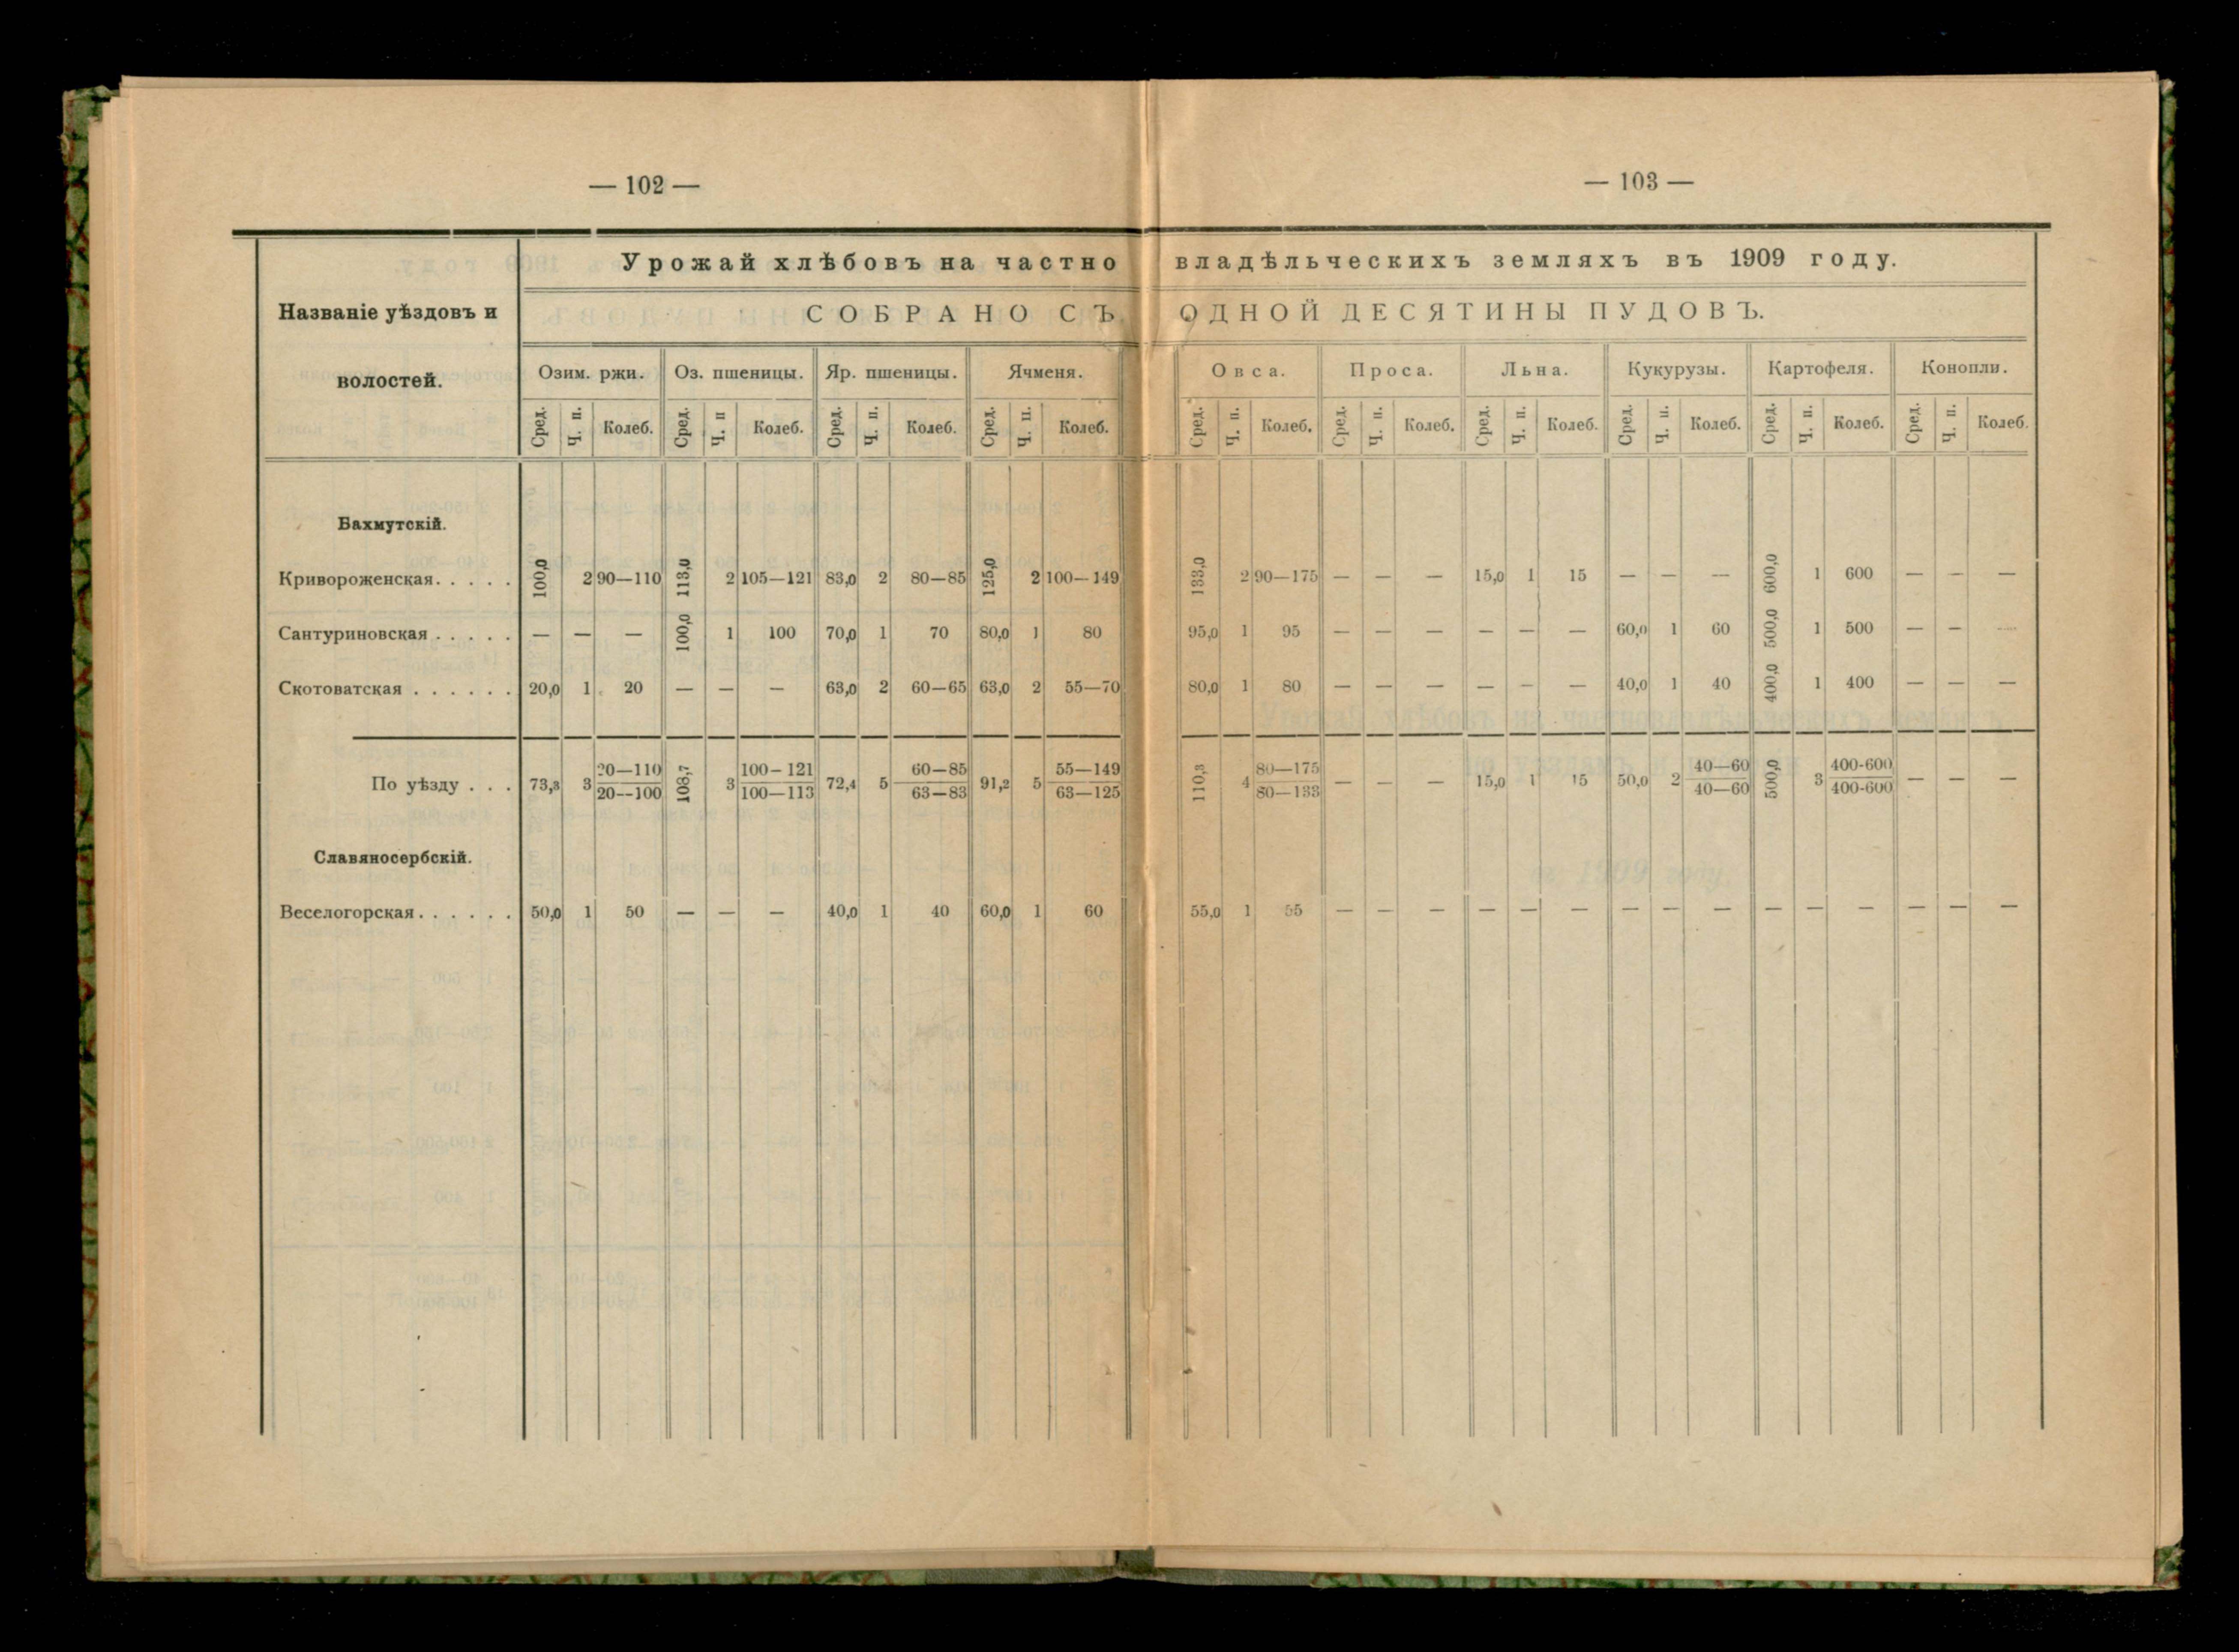 — 102 —
— 103 —
Урожай хлѣбовъ на частно владѣльческихъ земляхъ въ 1909 году.
Названіе уѣздовъ и волостей.
СОБРАНО СЪ ОДНОЙ ДЕСЯТИНЫ ПУДОВЪ.
Озим. ржи. Оз. пшеницы. Яр. пшеницы. Ячменя. Овса. Проса. Льна. Кукурузы. Картофеля. Конопли.
Сред. Ч. п. Колеб. Сред. Ч. п Колеб. Сред. Ч. п. Колеб. Сред. Ч. п. Колеб. Сред. Ч. п. Колеб. Сред. Ч. п. Колеб. Сред. Ч. п. Колеб. Сред. Ч. п. Колеб. Сред. Ч. п. Колеб. Сред. Ч. п. Колеб.
Бахмутскій.
Кривороженская. . . . . 100,0 2 90—110 113,0 2 105—121 83,0 2 80—85 125,0 2 100—149 133,0 2 90—175 — — — 15,0 1 15 — — — 600,0 1 600 — — —
Сантуриновская . . . . . — — — 100,0 1 100 70,0 1 70 80,0 1 80 95,0 1 95 — — — — — — 60,0 1 60 500,0 1 500 — — —
Скотоватская . . . . . . 20,0 1 20 — — — 63,0 2 60—65 63,0 2 55—70 80,0 1 80 — — — — — — 40,0 1 40 400,0 1 400 — — —
По уѣзду . . . 73,3 3 20—110 20—100 108,7 3 100—121 100—113 72,4 5 60—85 63—83 91,2 5 55—149 63—125 110,3 4 80—175 80—133 — — — 15,0 1 15 50,0 2 40—60 40—60 500,0 3 400-600 400-600 — — —
Славяносербскій.
Веселогорская. . . . . . 50,0 1 50 — — — 40,0 1 40 60,0 1 60 55,0 1 55 — — — — — — — — — — — — — — —